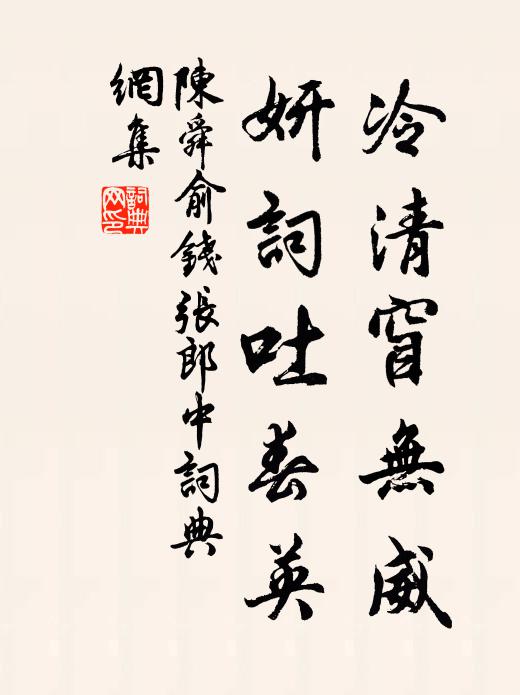 冷清窅無威
妍詞吐春英
陳舜俞錢張郎中詞典
網集
詞典网印